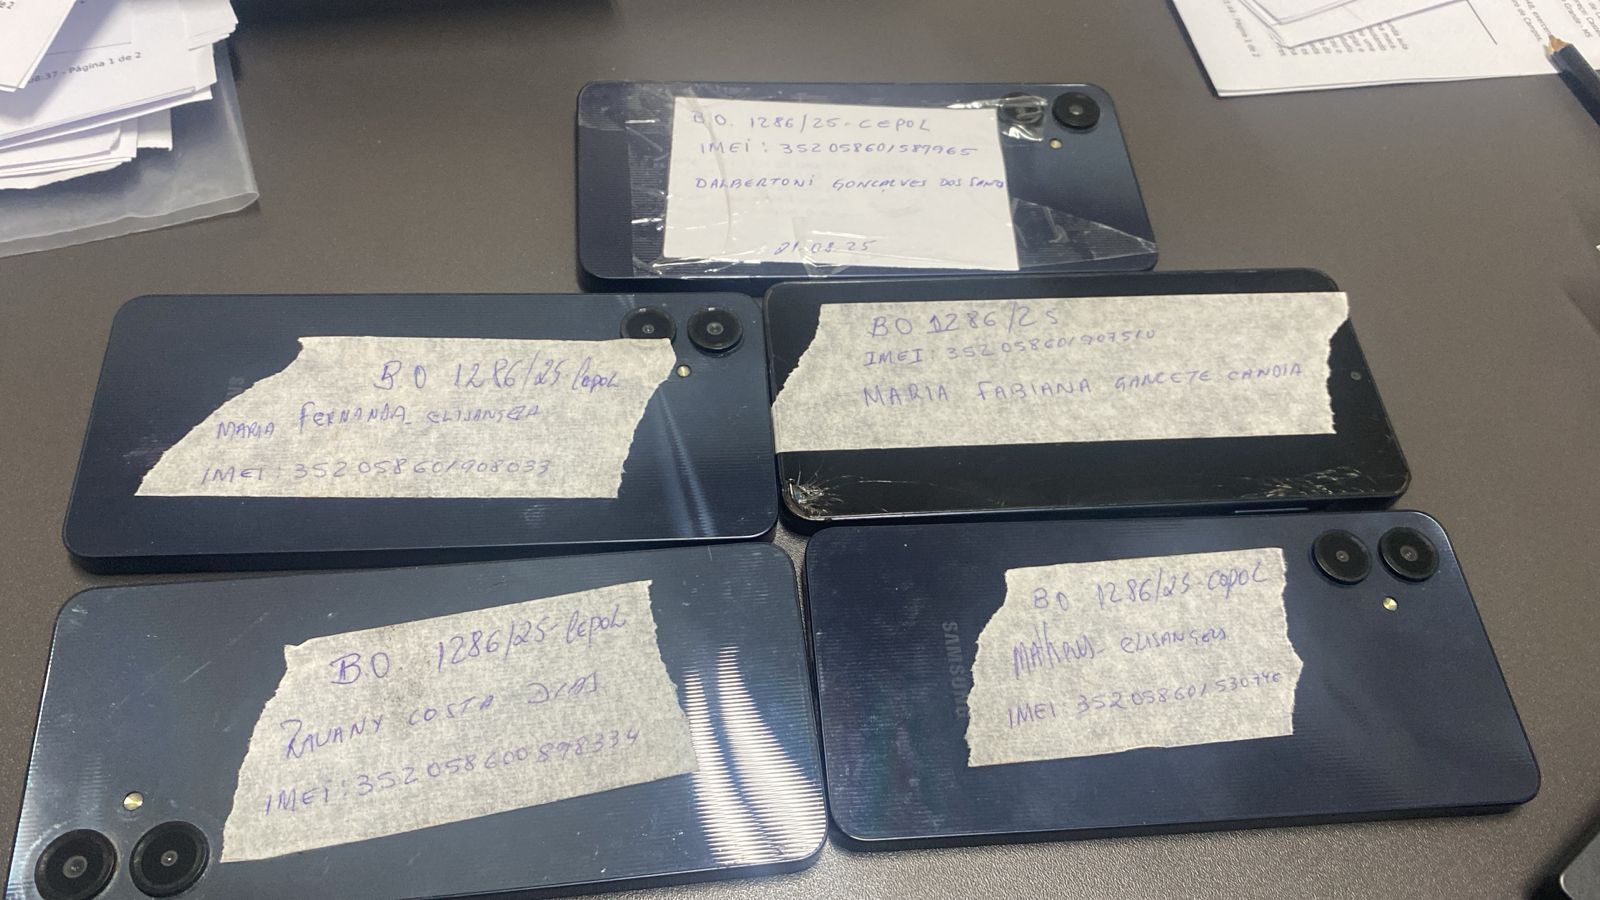 08:37 - Página 1 de 2
Página 1 de 2
B.O. 1286/25-CEPOL
IMEI: 352058601587965
DALBERTONI GONÇALVES DOS SANTO
21.08.25
BO 1286/25 Cepol
MARIA FERNANDA ELISANGELA
IMEI: 352058601908033
BO 1286/25
IMEI: 352058601907510
MARIA FABIANA GANCETE CANDIA
B.O. 1286/25-Cepol
RAVANY COSTA DIAS
IMEI: 352058600898334
SAMSUNG
B.O. 1286/25 Cepol
ELISANGELA
IMEI: 352058601530746